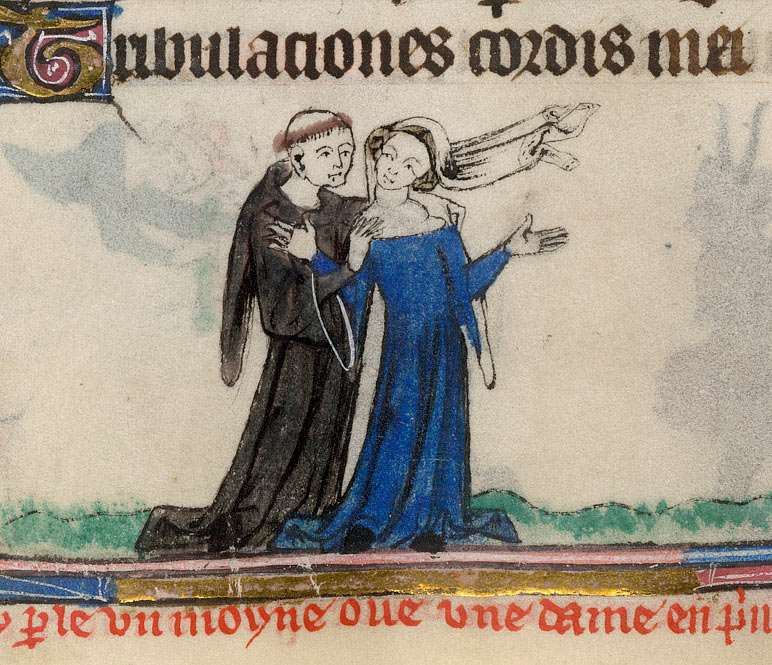 Tribulaciones cordis mei
y ꝑle vn moyne oue vne dame en